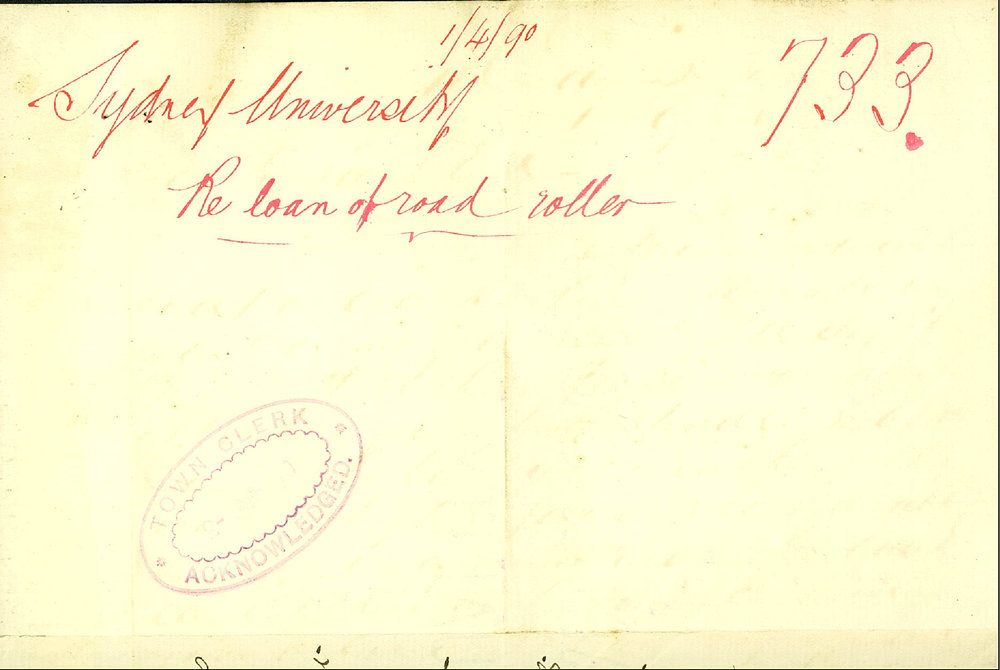 1/4/90
733.
Sydney University
Re loan of road roller
TOWN CLERK
ACKNOWLEDGED.